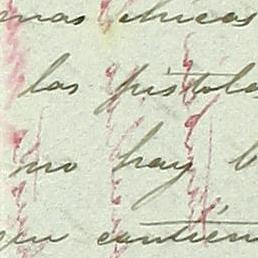 mas chicas
las pistola
no hay b
que cantien